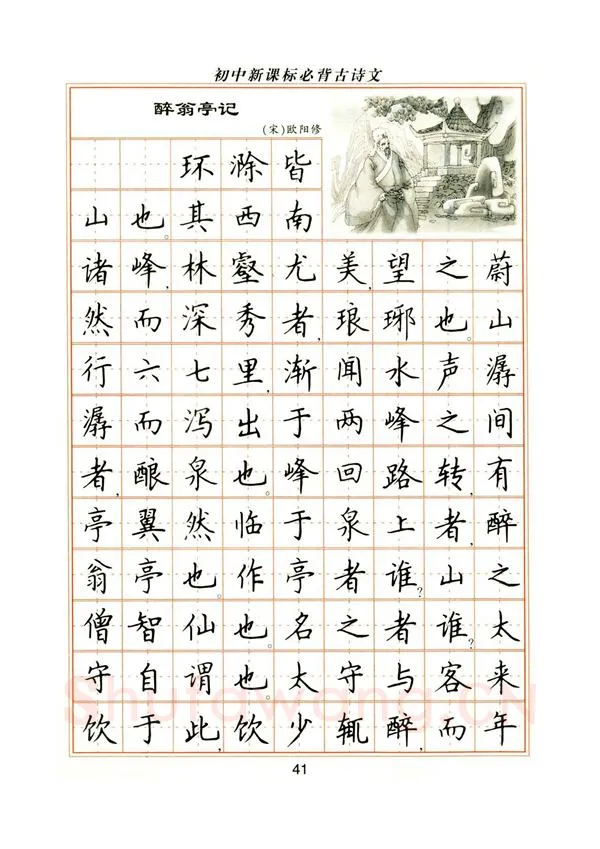 初中新课标必背古诗文
醉翁亭记
(宋)欧阳修
环滁皆
山也。其西南
诸峰,林壑尤美,望之蔚
然而深秀者,琅琊也。山
行六七里,渐闻水声潺
潺而泻出于两峰之间
者,酿泉也。峰回路转,有
亭翼然临于泉上者,醉
翁亭也。作亭者谁?山之
僧智仙也。名之者谁?太
守自谓也。太守与客来
饮于此,饮少辄醉,而年
Shufawang.CN
41